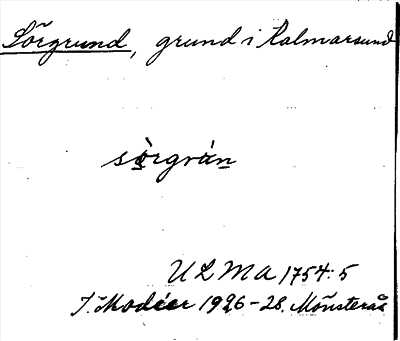 Sörgrund, grund i Kalmarsund
sòrgrún
ULMA 1754:5
I. Modéer 1926-28. Mönsterås